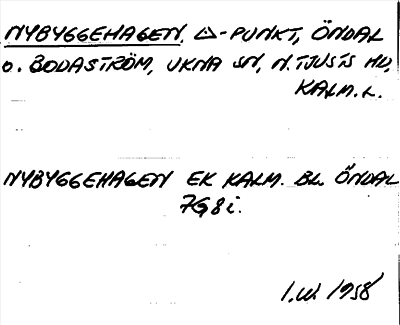 NYBYGGEHAGEN, △-PUNKT, ÖNDAL
o. BODASTRÖM, UKNA SN, N. TJUSTS HD,
KALM. L.
NYBYGGEHAGEN EK KALM. BL. ÖNDAL
7G8i.
1958